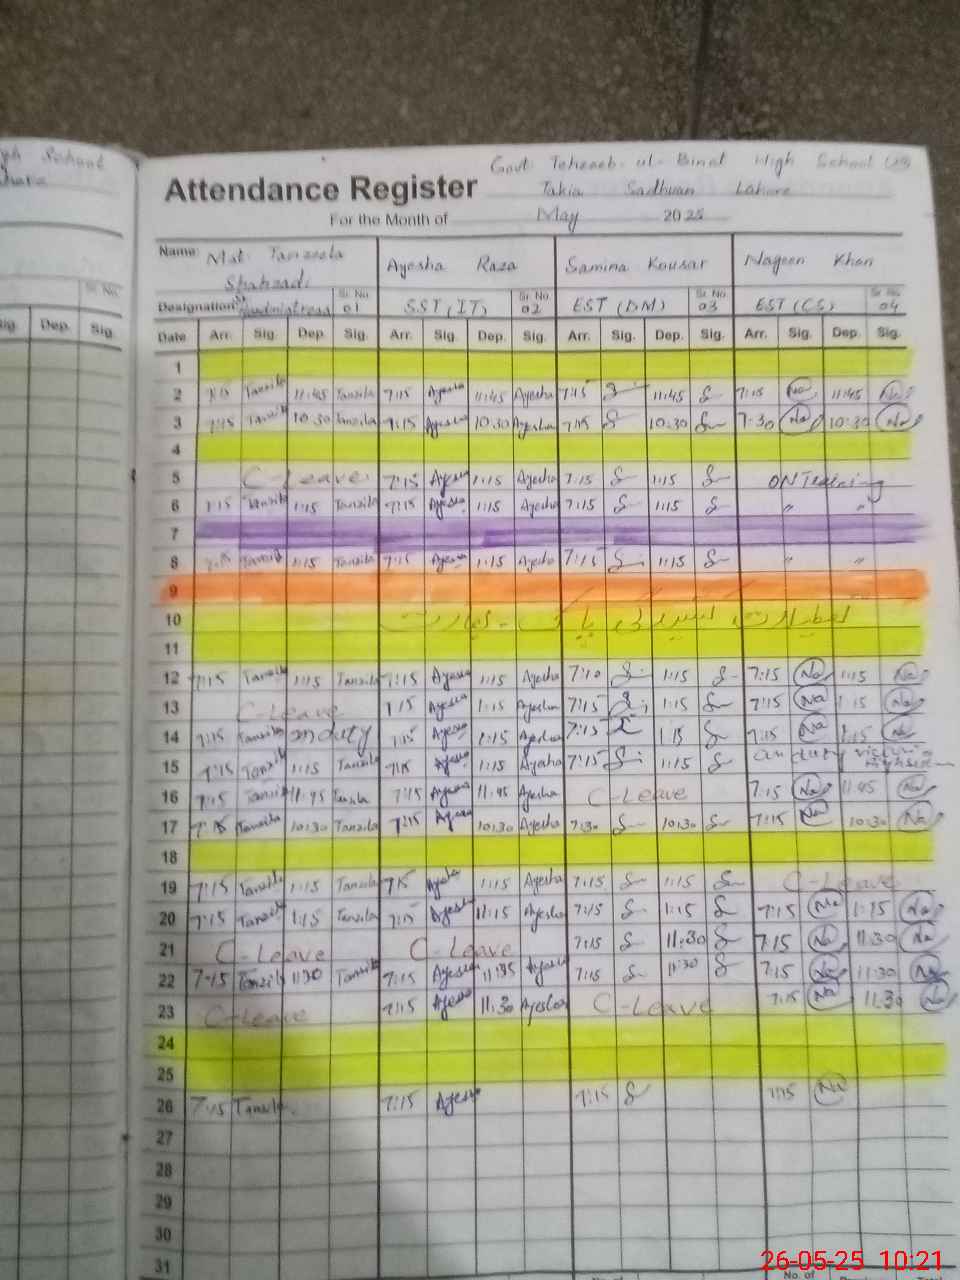 School
Govt. Tehzeeb-ul-Binat High School
Attendance Register Takia Sadhuan Lahore
For the Month of May 2025
Name: Mst. Tanzeela Shahzadi Ayesha Raza Samina Kousar Nageen Khan
Designation Sr. No. 01 SST (IT) Sr. No. 02 EST (DM) Sr. No. 03 EST (CS) Sr. No. 04
Date Arr. Sig. Dep. Sig. Arr. Sig. Dep. Sig. Arr. Sig. Dep. Sig. Arr. Sig. Dep. Sig.
1
2 7:15 Tanzila 11:45 Tanzila 7:15 Ayesha 11:45 Ayesha 7:15 11:45 7:15 Na 11:45 Na
3 7:15 Tanzila 10:30 Tanzila 7:15 Ayesha 10:30 Ayesha 7:15 10:30 7:30 Na 10:30 Na
4
5 C-Leave 7:15 Ayesha 1:15 Ayesha 7:15 1:15 ON Training
6 7:15 Tanzila 1:15 Tanzila 7:15 Ayesha 1:15 Ayesha 7:15 1:15 " "
7
8 7:15 Tanzila 1:15 Tanzila 7:15 Ayesha 1:15 Ayesha 7:15 1:15 " "
9
10
11
12 7:15 Tanzila 1:15 Tanzila 7:15 Ayesha 1:15 Ayesha 7:10 1:15 7:15 Na 1:15 Na
13 C-Leave 7:15 Ayesha 1:15 Ayesha 7:15 1:15 7:15 Na 1:15 Na
14 7:15 Tanzila on duty 7:15 Ayesha 1:15 Ayesha 7:15 1:15 7:15 Na 1:15 Na
15 7:15 Tanzila 1:15 Tanzila 7:15 Ayesha 1:15 Ayesha 7:15 1:15 on duty
16 7:15 Tanzila 11:45 Tanzila 7:15 Ayesha 11:45 Ayesha C-Leave 7:15 Na 11:45 Na
17 7:15 Tanzila 10:30 Tanzila 7:15 Ayesha 10:30 Ayesha 7:30 10:30 7:15 Na 10:30 Na
18
19 7:15 Tanzila 1:15 Tanzila 7:15 Ayesha 1:15 Ayesha 7:15 1:15 C-Leave
20 7:15 Tanzila 1:15 Tanzila 7:15 Ayesha 11:15 Ayesha 7:15 1:15 7:15 Na 1:15 Na
21 C-Leave C-Leave 7:15 11:30 7:15 Na 11:30 Na
22 7:15 Tanzila 11:30 Tanzila 7:15 Ayesha Ayesha 7:15 11:30 7:15 Na 11:30 Na
23 C-Leave 7:15 Ayesha 11:30 Ayesha C-Leave 7:15 Na 11:30 Na
24
25
26 7:15 Tanzila 7:15 Ayesha 7:15 7:15 Na
27
28
29
30
31
No. of
26-05-25 10:21